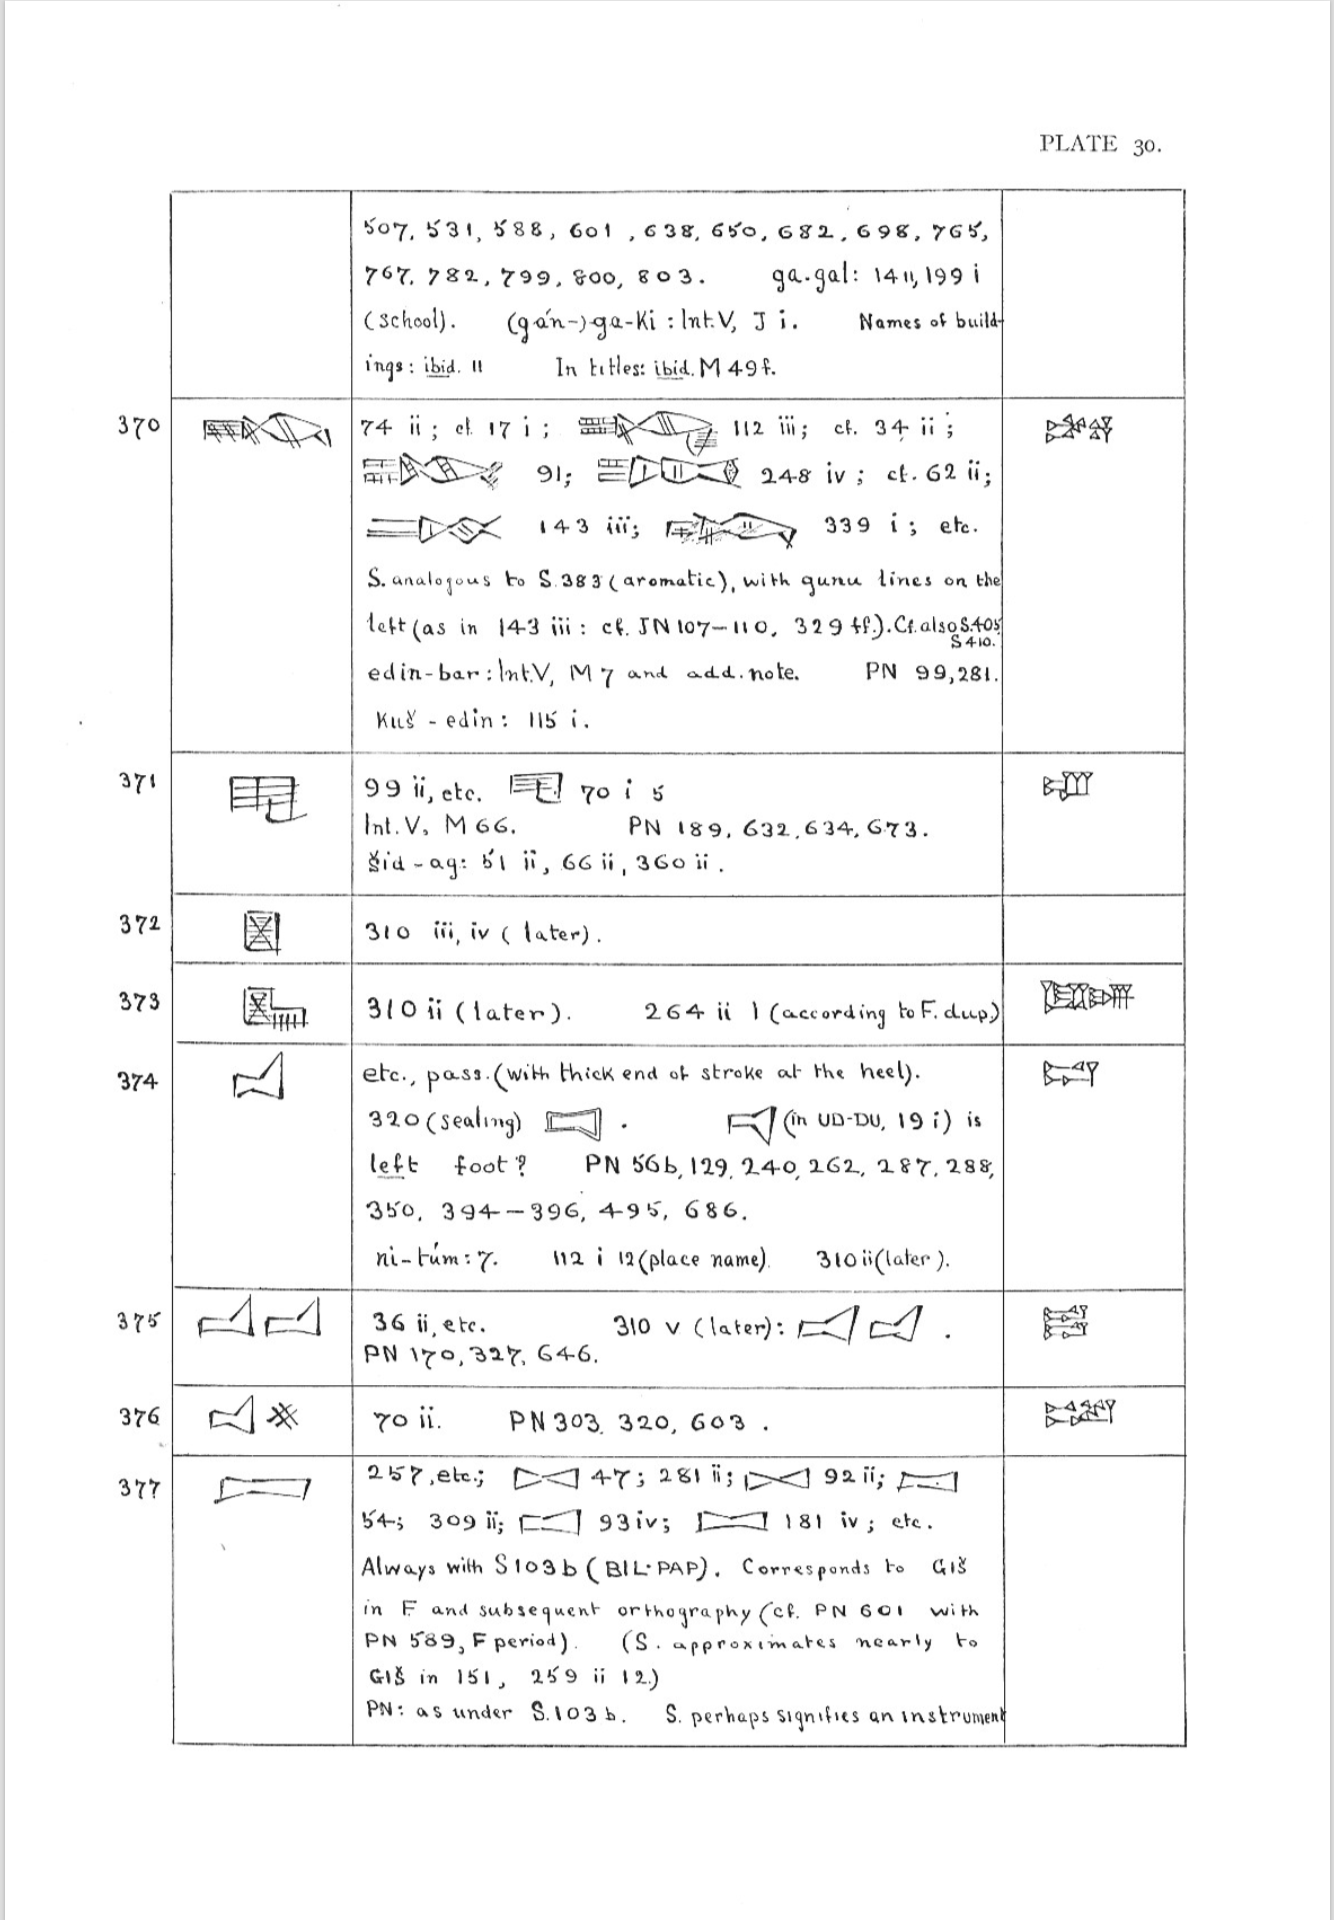 PLATE 30.
507, 531, 588, 601, 638, 650, 682, 698, 765,
767, 782, 799, 800, 803. ga-gal: 14 11, 199 i
(school). (gán-)ga-Ki : Int.V, J i. Names of build-
ings: ibid. 11 In titles: ibid. M 49f.
370 74 ii; cf. 17 i; 112 iii; cf. 34 ii;
91; 248 iv; cf. 62 ii;
143 iii; 339 i; etc.
S. analogous to S.383 (aromatic), with gunu lines on the
left (as in 143 iii: cf. JN 107–110, 329 ff.). Cf. also S.405
S 410.
edin-bar: Int.V, M 7 and add. note. PN 99, 281.
Kuš-edin: 115 i.
371 99 ii, etc. 70 i 5
Int. V, M 66. PN 189, 632, 634, 673.
šid-ag: 51 ii, 66 ii, 360 ii.
372 310 iii, iv (later).
373 310 ii (later). 264 ii 1 (according to F. dup.)
374 etc., pass. (with thick end of stroke at the heel).
320 (sealing) . (in UD-DU, 19 i) is
left foot? PN 56b, 129, 240, 262, 287, 288,
350, 394–396, 495, 686.
ni-túm: 7. 112 i 12 (place name). 310 ii (later).
375 36 ii, etc. 310 v (later): .
PN 170, 327, 646.
376 70 ii. PN 303, 320, 603.
377 257, etc.; 47; 281 ii; 92 ii;
54; 309 ii; 93 iv; 181 iv; etc.
Always with S 103 b (BIL-PAP). Corresponds to GIŠ
in F and subsequent orthography (cf. PN 601 with
PN 589, F period). (S. approximates nearly to
GIŠ in 151, 259 ii 12.)
PN: as under S.103 b. S. perhaps signifies an instrument